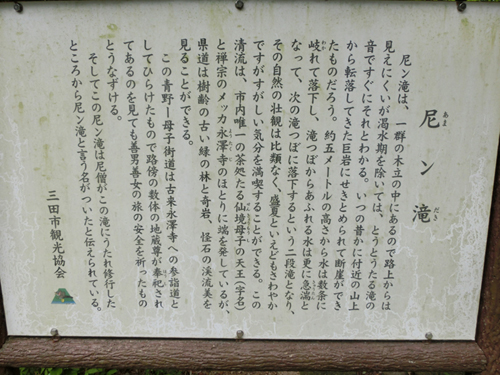 尼ン滝
あま
だき
尼ン滝は、一群の木立の中にあるので路上からは
見えにくいが渇水期を除いては、とうとうたる滝の
音ですぐにそれとわかる。いつの昔かに付近の山上
から転落してきた巨岩にせきとめられて断崖ができ
たものだろう。約五メートルの高さから水は数条に
岐れて落下し、滝つぼからあふれる水は更に急湍と
なって、次の滝つぼに落下するという二段滝となり、
その自然の壮観は比類なく、盛夏といえどもさわやか
ですがすがしい気分を満喫することができる。この
清流は、市内唯一の茶処たる仙境母子の天王(字名)
と禅宗のメッカ永澤寺のほとりに端を発しているが、
県道は樹齢の古い緑の林と奇岩、怪石の渓流美を
見ることができる。
この青野ー母子街道は古来永澤寺への参詣道と
してひらけたもので路傍の数体の地蔵尊が奉祀され
てあるのを見ても善男善女の旅の安全を祈ったもの
とうなずける。
そしてこの尼ン滝は尼僧がこの滝にうたれ修行した
ところから尼ン滝と言う名がついたと伝えられている。
三田市観光協会